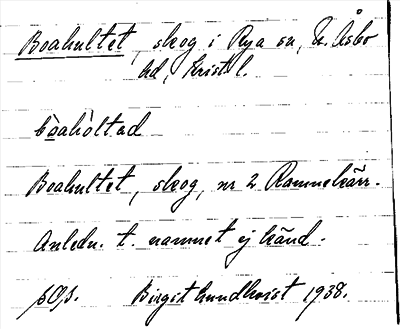 Boahultet, skog i Rya sn, N. Åsbo
hd, Krist l.
bòahòltad
Boahultet, skog, nr 2 Rammekärr.
Anledn. t. namnet ej känd.
Birgit Lundkvist 1938.